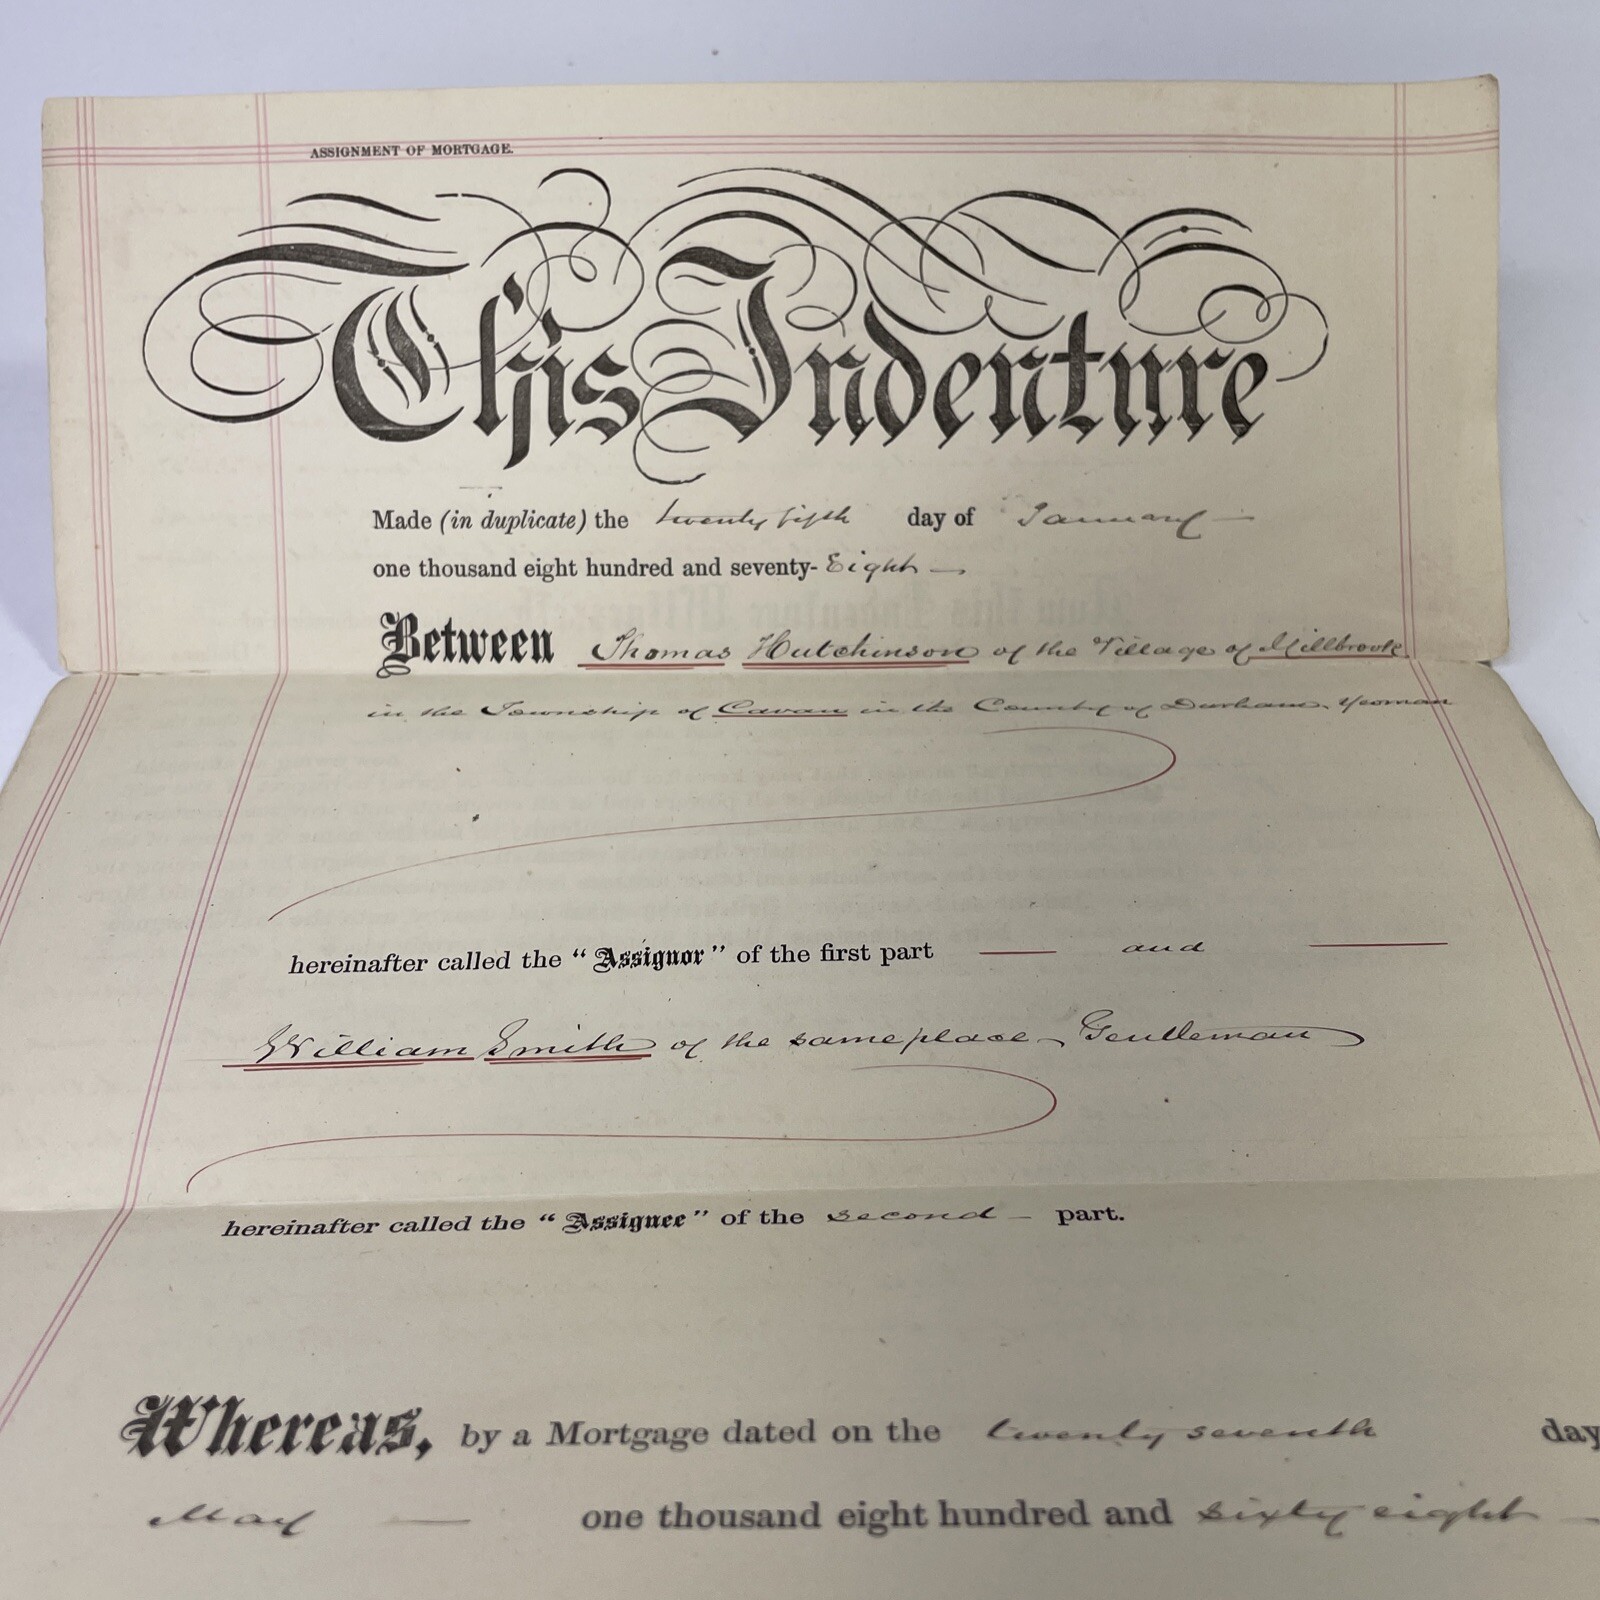 ASSIGNMENT OF MORTGAGE.
This Indenture
Made (in duplicate) the twenty fifth day of January
one thousand eight hundred and seventy-Eight
Between Thomas Hutchinson of the Village of Millbrook
in the Township of Cavan in the County of Durham, Yeoman
hereinafter called the "Assignor" of the first part — and —
William Smith of the same place, Gentleman
hereinafter called the "Assignee" of the second — part.
Whereas, by a Mortgage dated on the twenty seventh day
May — one thousand eight hundred and sixty eight —